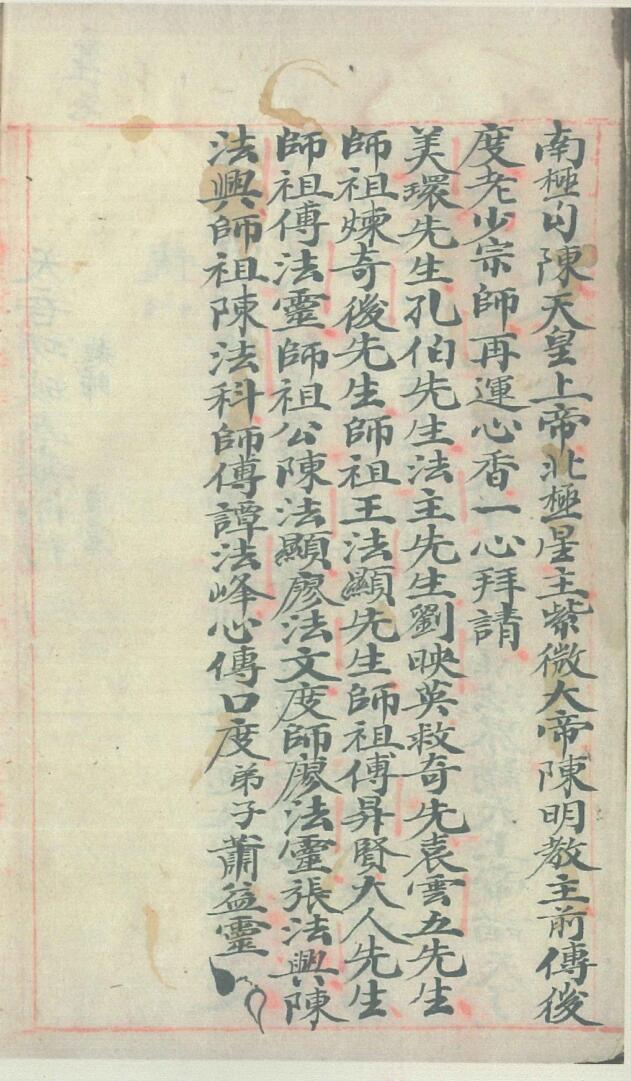 南極勾陳天皇上帝北極星主紫微大帝陳明教主前傳後
度老少宗師再運心香一心拜請
美環先生孔伯先生法主先生劉映英救奇先袁雲五先生
師祖煉奇後先生師祖王法顯先生師祖傅昇賢大人先生
師祖傅法靈師祖公陳法顯廖法文度師廖法靈張法興陳
法興師祖陳法科師傅譚法峰心傳口度弟子蕭益靈